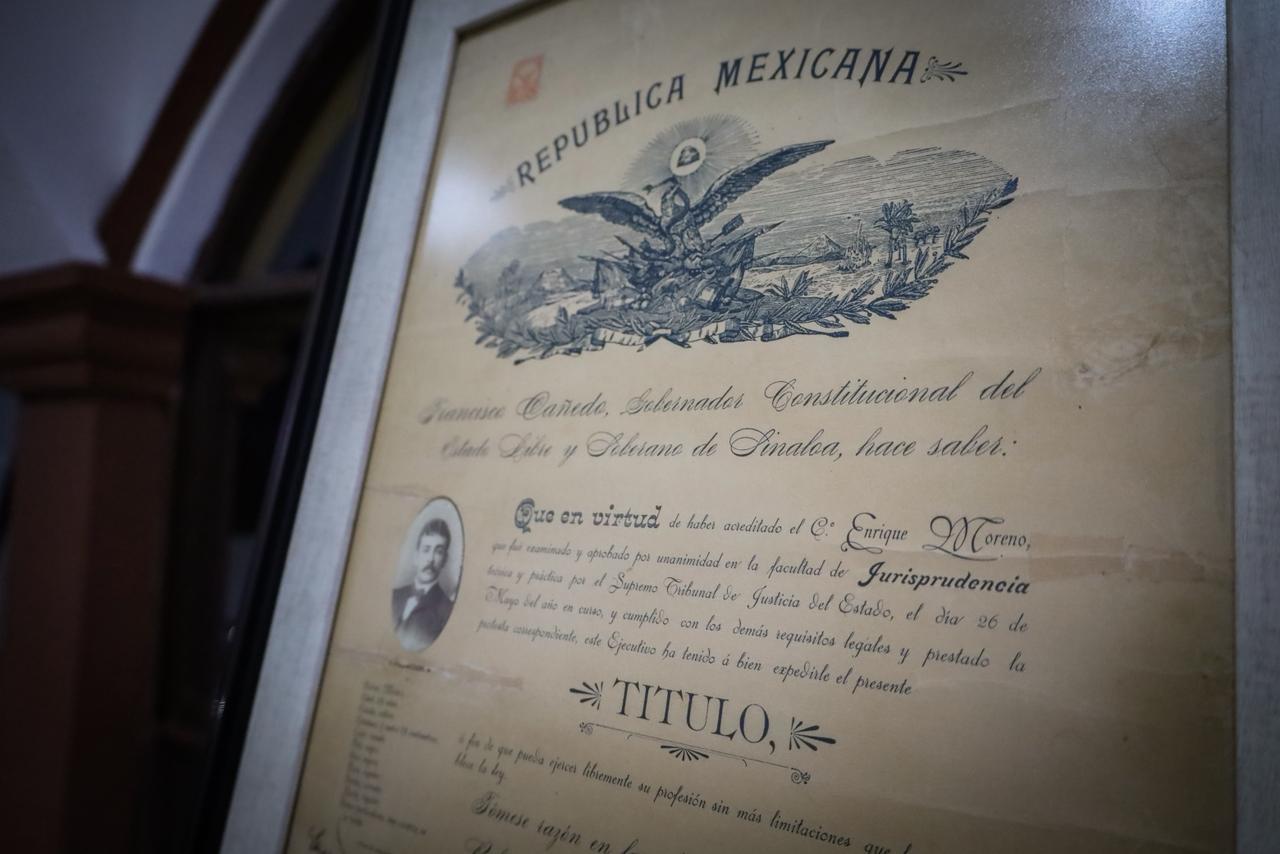 REPUBLICA MEXICANA
Francisco Cañedo, Gobernador Constitucional del
Estado Libre y Soberano de Sinaloa, hace saber:
Que en virtud de haber acreditado el C.º Enrique Moreno,
que fué examinado y aprobado por unanimidad en la facultad de Jurisprudencia
teórica y práctica por el Supremo Tribunal de Justicia del Estado, el día 26 de
Mayo del año en curso, y cumplido con los demás requisitos legales y prestado la
protesta correspondiente, este Ejecutivo ha tenido á bien expedirle el presente
TITULO,
á fin de que pueda ejercer libremente su profesión sin más limitaciones que
blece la ley.
Tómese razón en